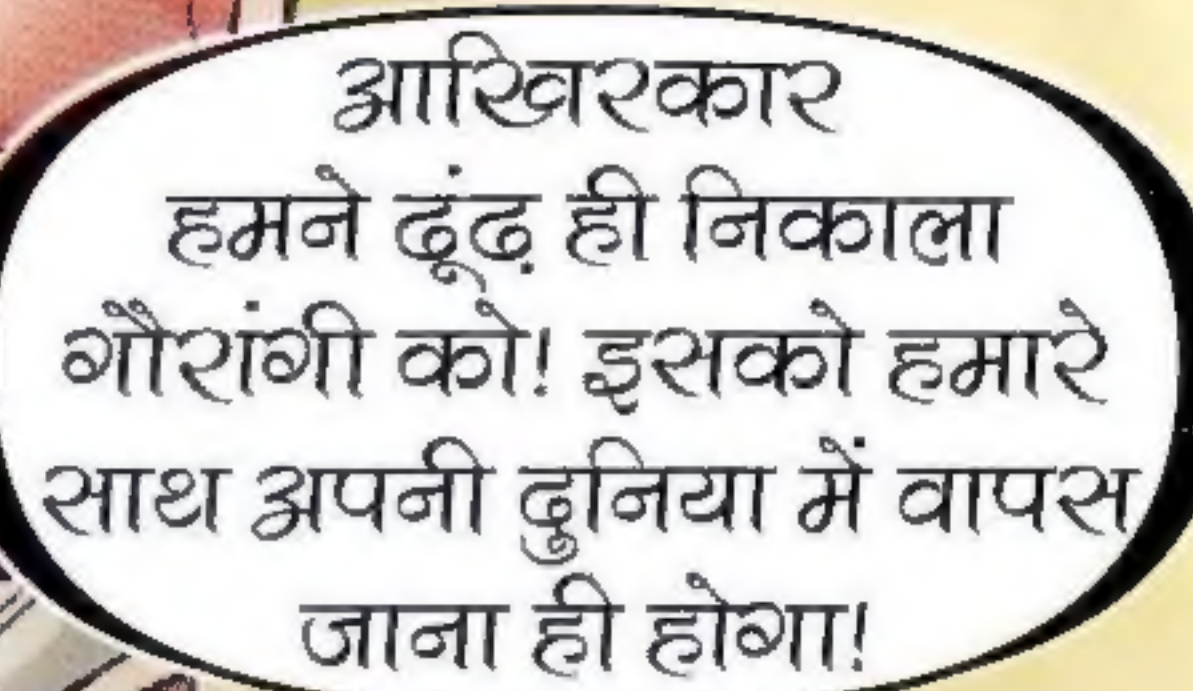 आखिरकार
हमने ढूंढ़ ही निकाला
गौरांगी को! इसको हमारे
साथ अपनी दुनिया में वापस
जाना ही होगा!